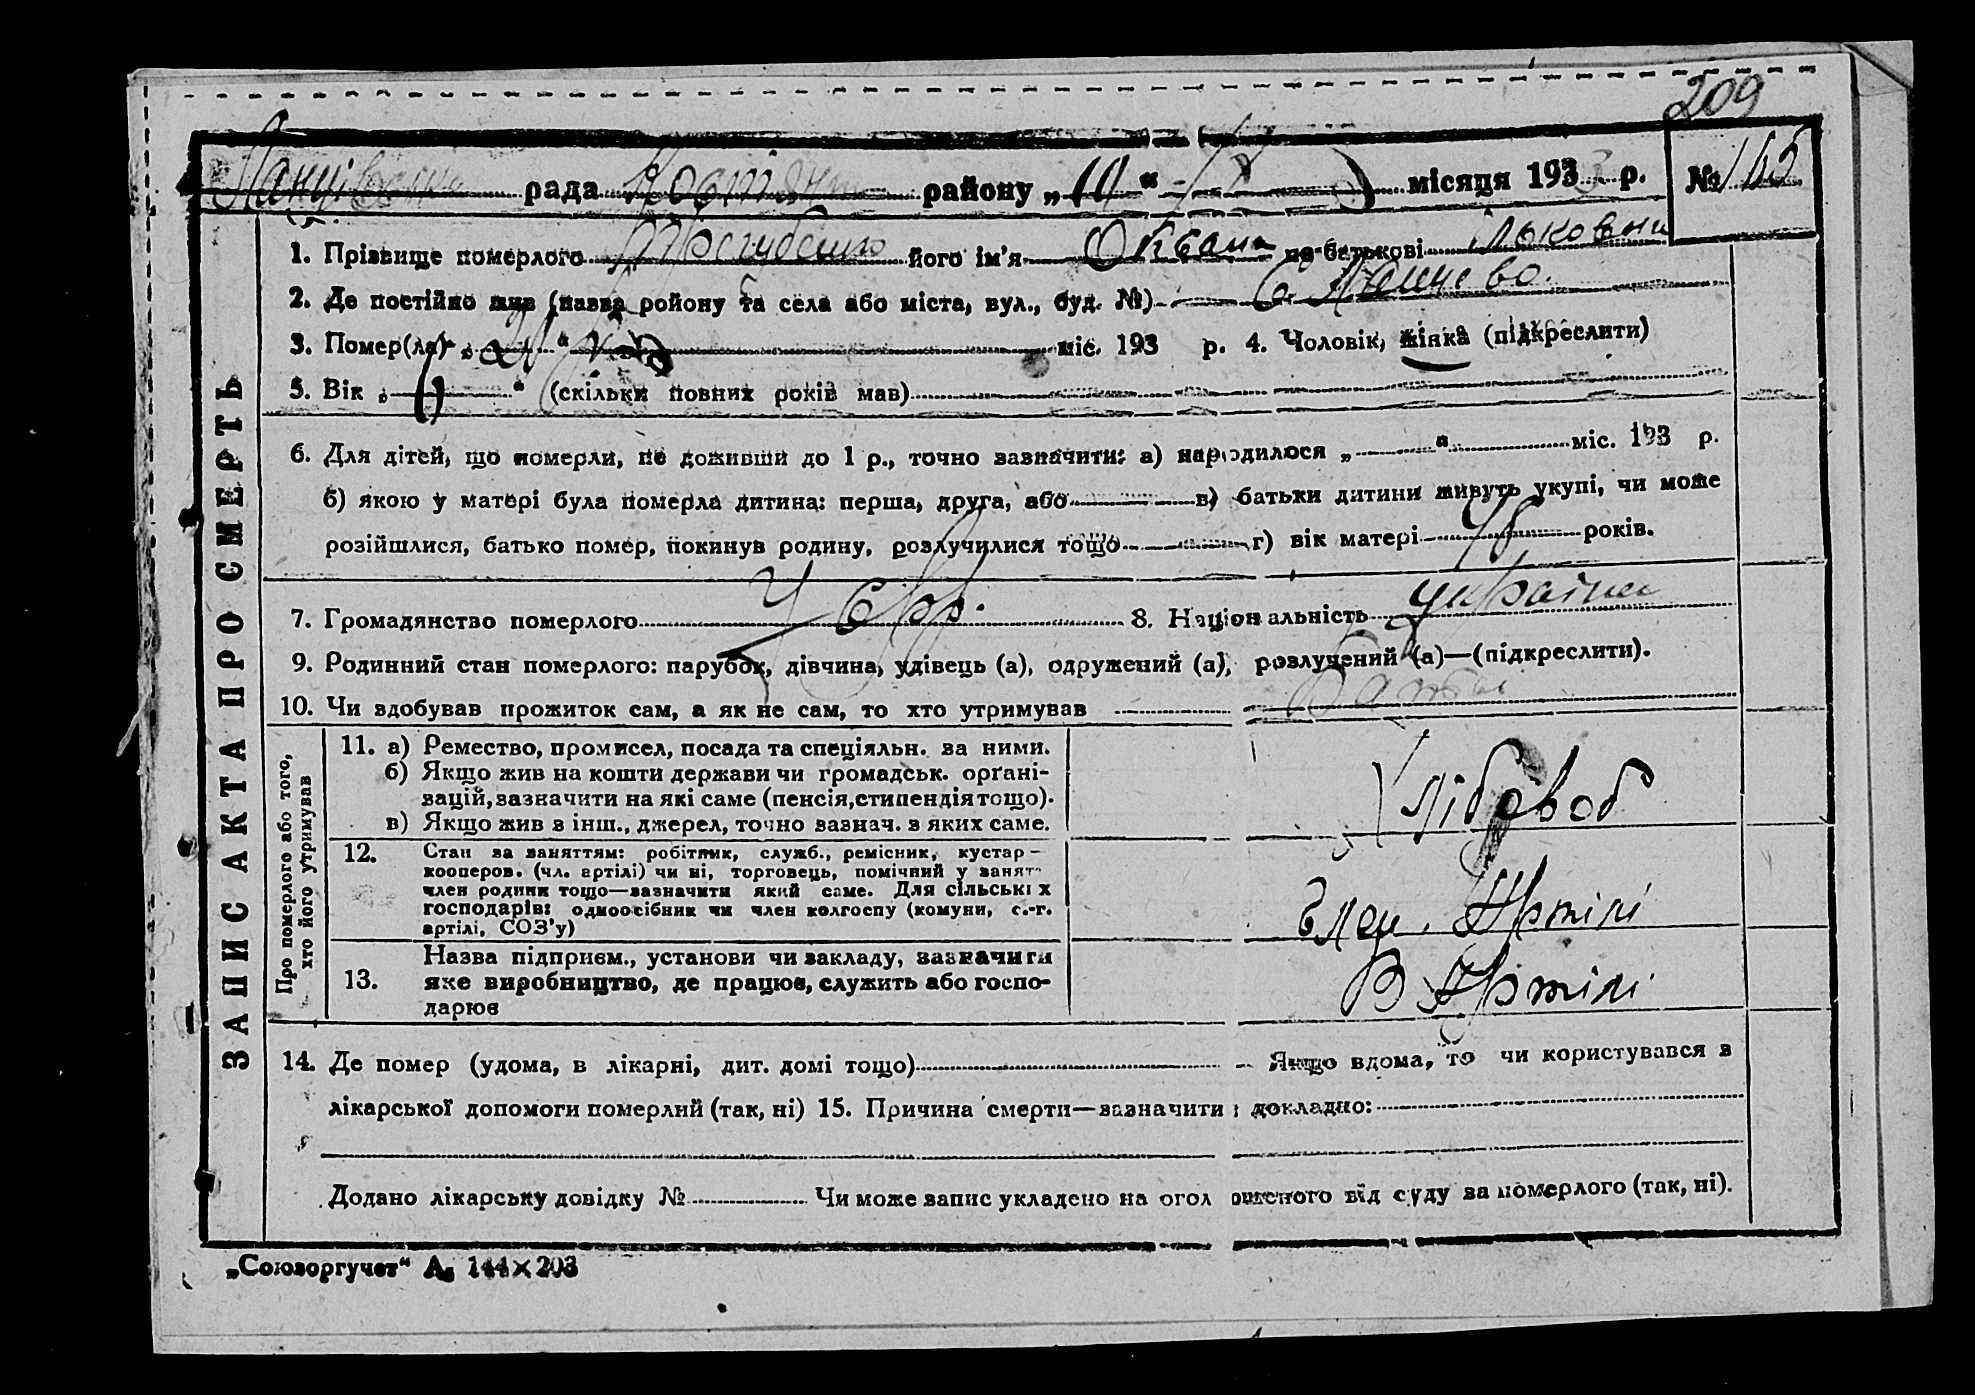 209
рада району „10" місяця 193 р. № 165
ЗАПИС АКТА ПРО СМЕРТЬ
1. Прізвище померлого його ім'я Оксана по-батькові Ільковна
2. Де постійно жив (назва ройону та села або міста, вул., буд. №) с.
3. Помер(ла) „ " міс. 193 р. 4. Чоловік, жінка (підкреслити)
5. Вік „ " (скільки повних років мав)
6. Для дітей, що померли, не доживши до 1 р., точно зазначити: а) народилося „ " міс. 193 р.
б) якою у матері була померла дитина: перша, друга, або в) батьки дитини живуть укупі, чи може
розійшлися, батько помер, покинув родину, розлучилися тощо г) вік матері років.
7. Громадянство померлого УСРР. 8. Національність українка
9. Родинний стан померлого: парубок, дівчина, удівець (а), одружений (а), розлучений (а)—(підкреслити).
10. Чи здобував прожиток сам, а як не сам, то хто утримував
Про померлого або того,
хто його утримував
11. а) Ремество, промисел, посада та спеціяльн. за ними.
б) Якщо жив на кошти держави чи громадськ. орґані-
зацій, зазначити на які саме (пенсія, стипендія тощо).
в) Якщо жив з інш., джерел, точно зазнач. з яких саме.
Хлібороб
12. Стан за заняттям: робітник, служб., ремісник, кустар—
кооперов. (чл. артілі) чи ні, торговець, помічний у занят-
член родини тощо—зазначити який саме. Для сільських
господарів: одноосібник чи член колгоспу (комуни, с.-г.
артілі, СОЗ'у)
Член. Артілі
Назва підприєм., установи чи закладу, зазначити
13. яке виробництво, де працює, служить або госпо-
дарює
В Артілі
14. Де помер (удома, в лікарні, дит. домі тощо) Якщо вдома, то чи користувався з
лікарської допомоги померлий (так, ні) 15. Причина смерти—зазначити докладно:
Додано лікарську довідку № Чи може запис укладено на оголошеного від суду за померлого (так, ні).
„Союзоргучет" А₅ 144×203